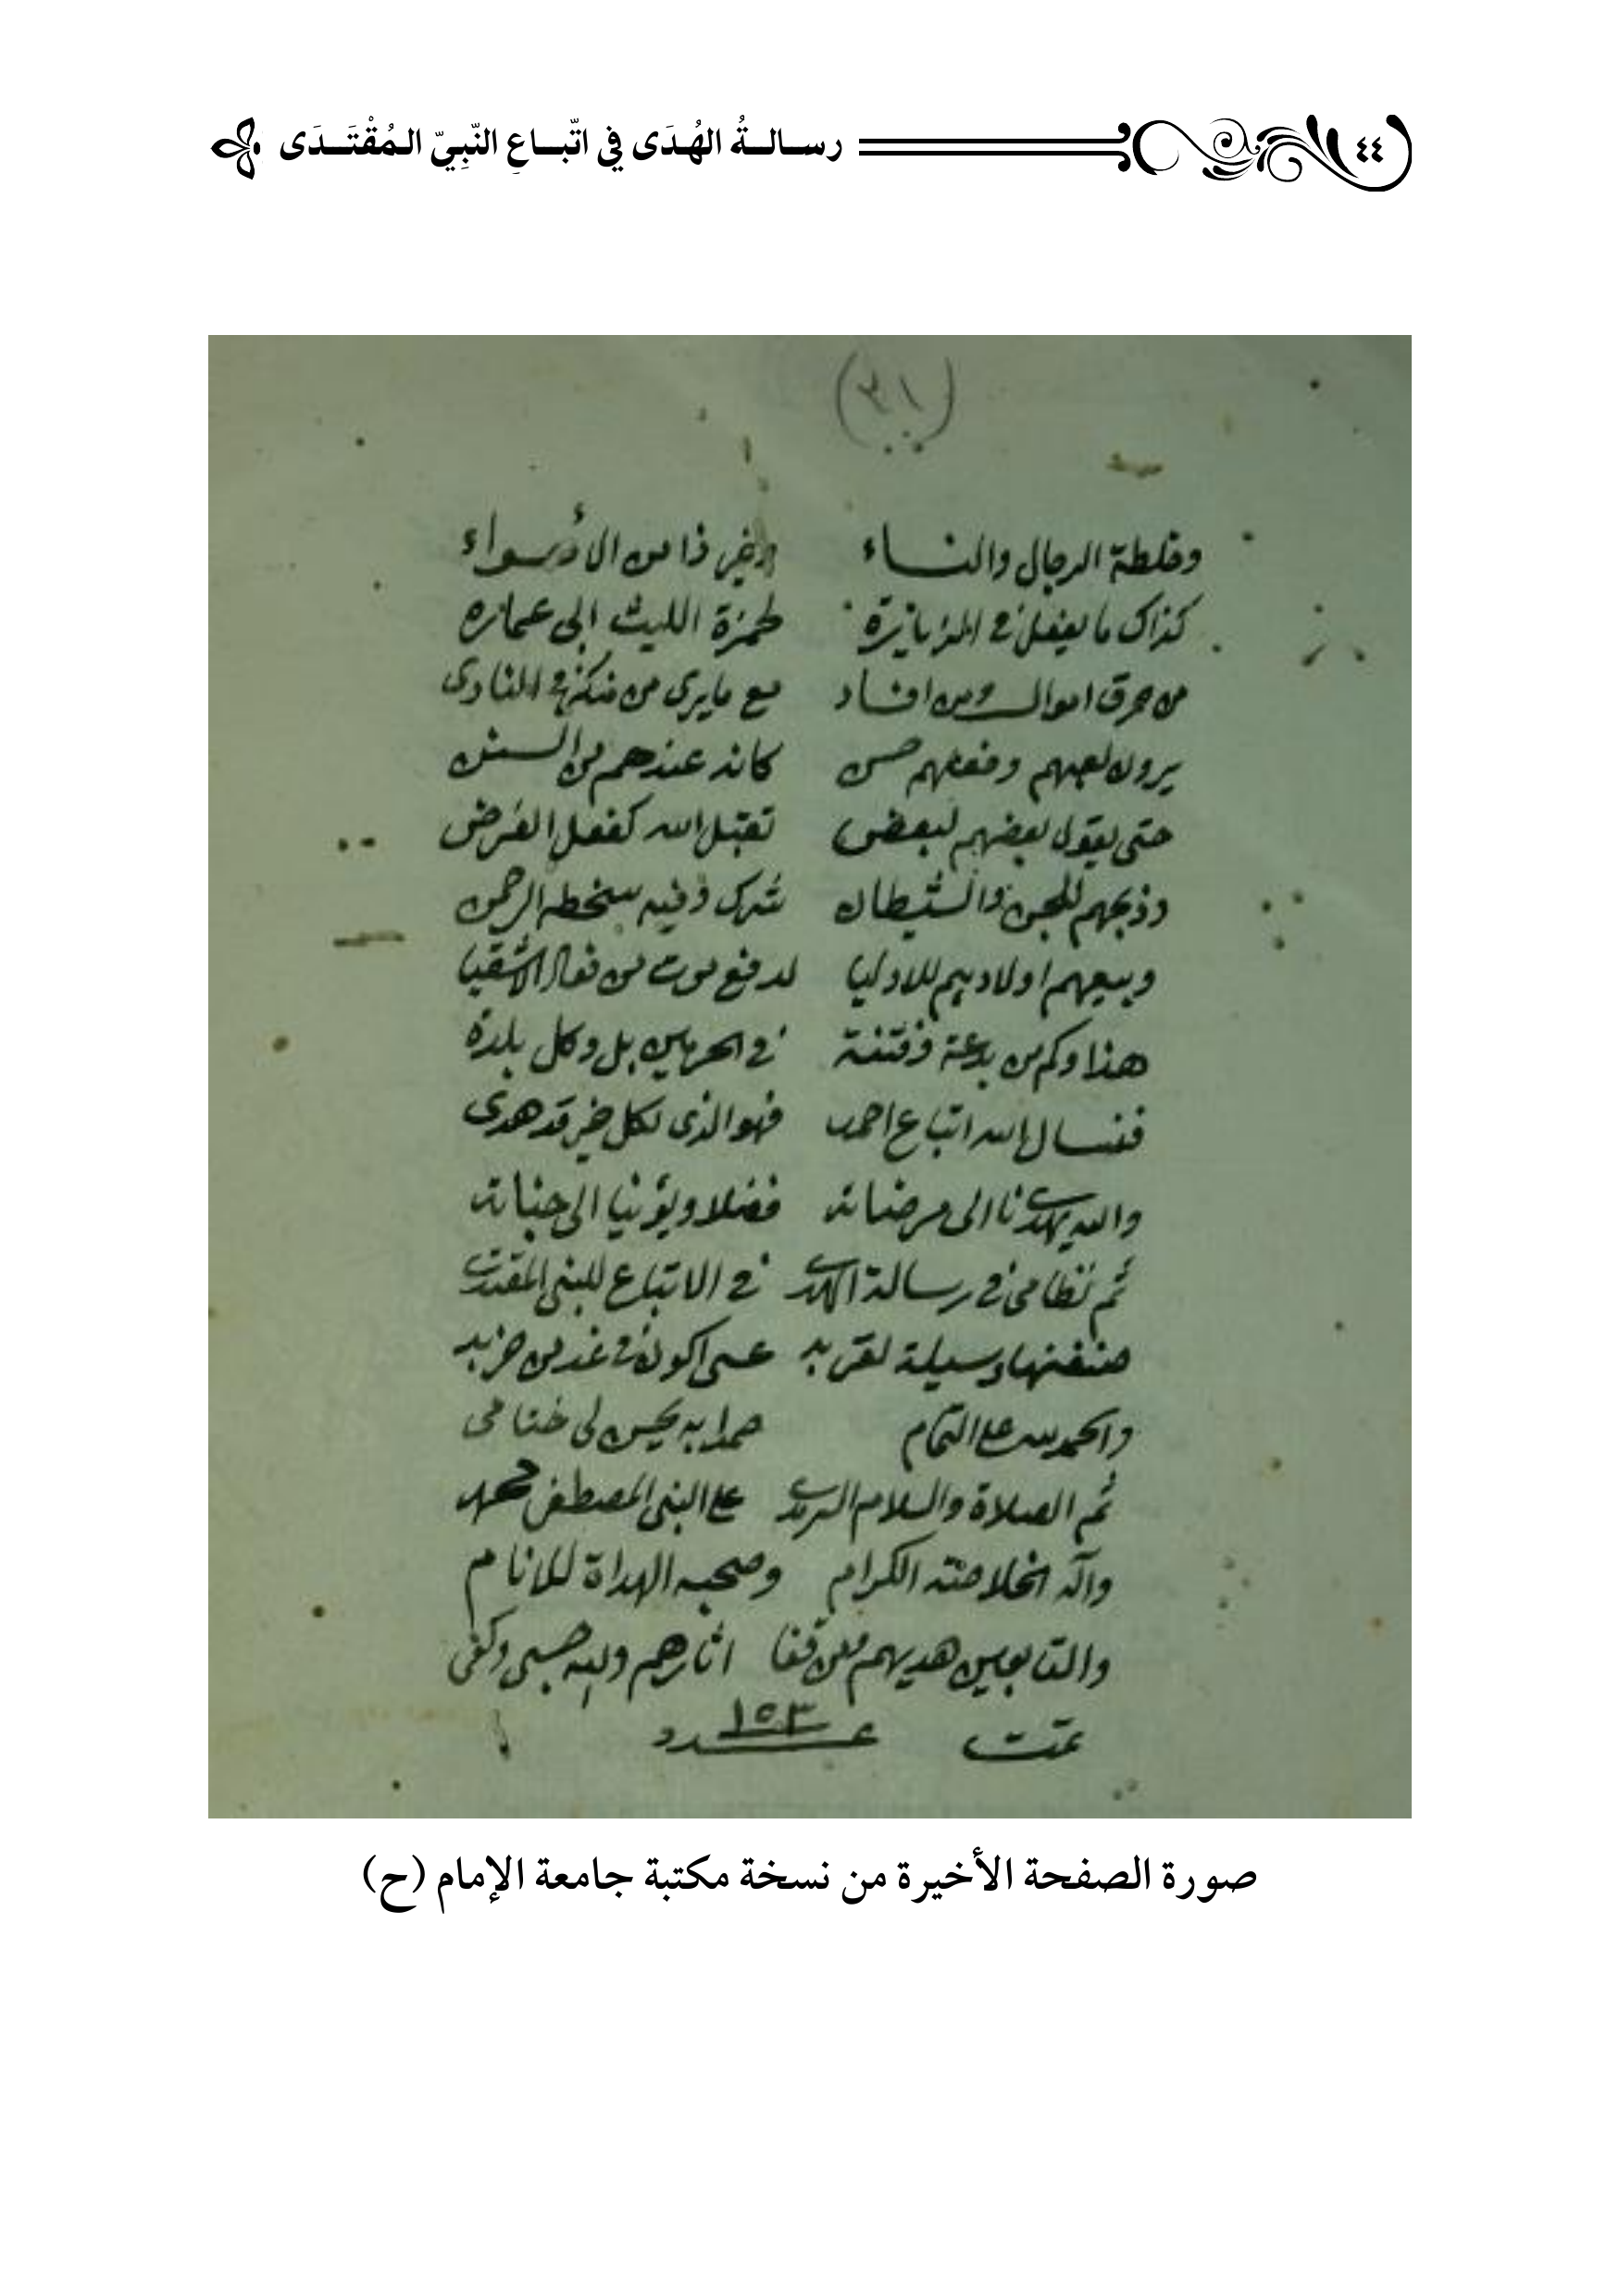 ٤٤ رسالةُ الهُدَى في اتّباعِ النّبِيّ المُقْتَدَى
(٣١)
وخلطة الرجال والنساء وغير ذا من الأسواء
كذاك ما يفعل في المزيازرة لحمزة الليث ابى عماره
من صرق اموال ومن افساد مع ما يرى من منكر في النادى
يرون لعبهم وفعلهم حسن كانه عندهم من السنن
حتى يقول بعضهم لبعض تقبل الله كفعل الفرض
وذبحهم للجن والشيطان شرك وفيه سخطه الرحمن
وبيعهم اولادهم للاوليا لدفع موت من فعال الاشقيا
هذا وكم من بدعة وفتنة في الحرمين بل وكل بلدة
فنسال الله اتباع احمدا فهو الذى لكل خير قد هدى
والله يهدينا الى مرضاته فضلا ويؤينا الى جناته
ثم نظامى في رسالة الهدى في الاتباع للنبى المقتدى
صنفتها وسيلة لقربه عسى اكون في غد من حزبه
والحمد لله على التمام حمدا به يحسن لى ختامى
ثم الصلاة والسلام السرمدى على النبى المصطفى محمد
وآله الخلاصة الكرام وصحبه الهداة للانام
والتابعين هديهم من قفا اثارهم ولله حسبى وكفى
تمت عدد ١٥٣
صورة الصفحة الأخيرة من نسخة مكتبة جامعة الإمام (ح)